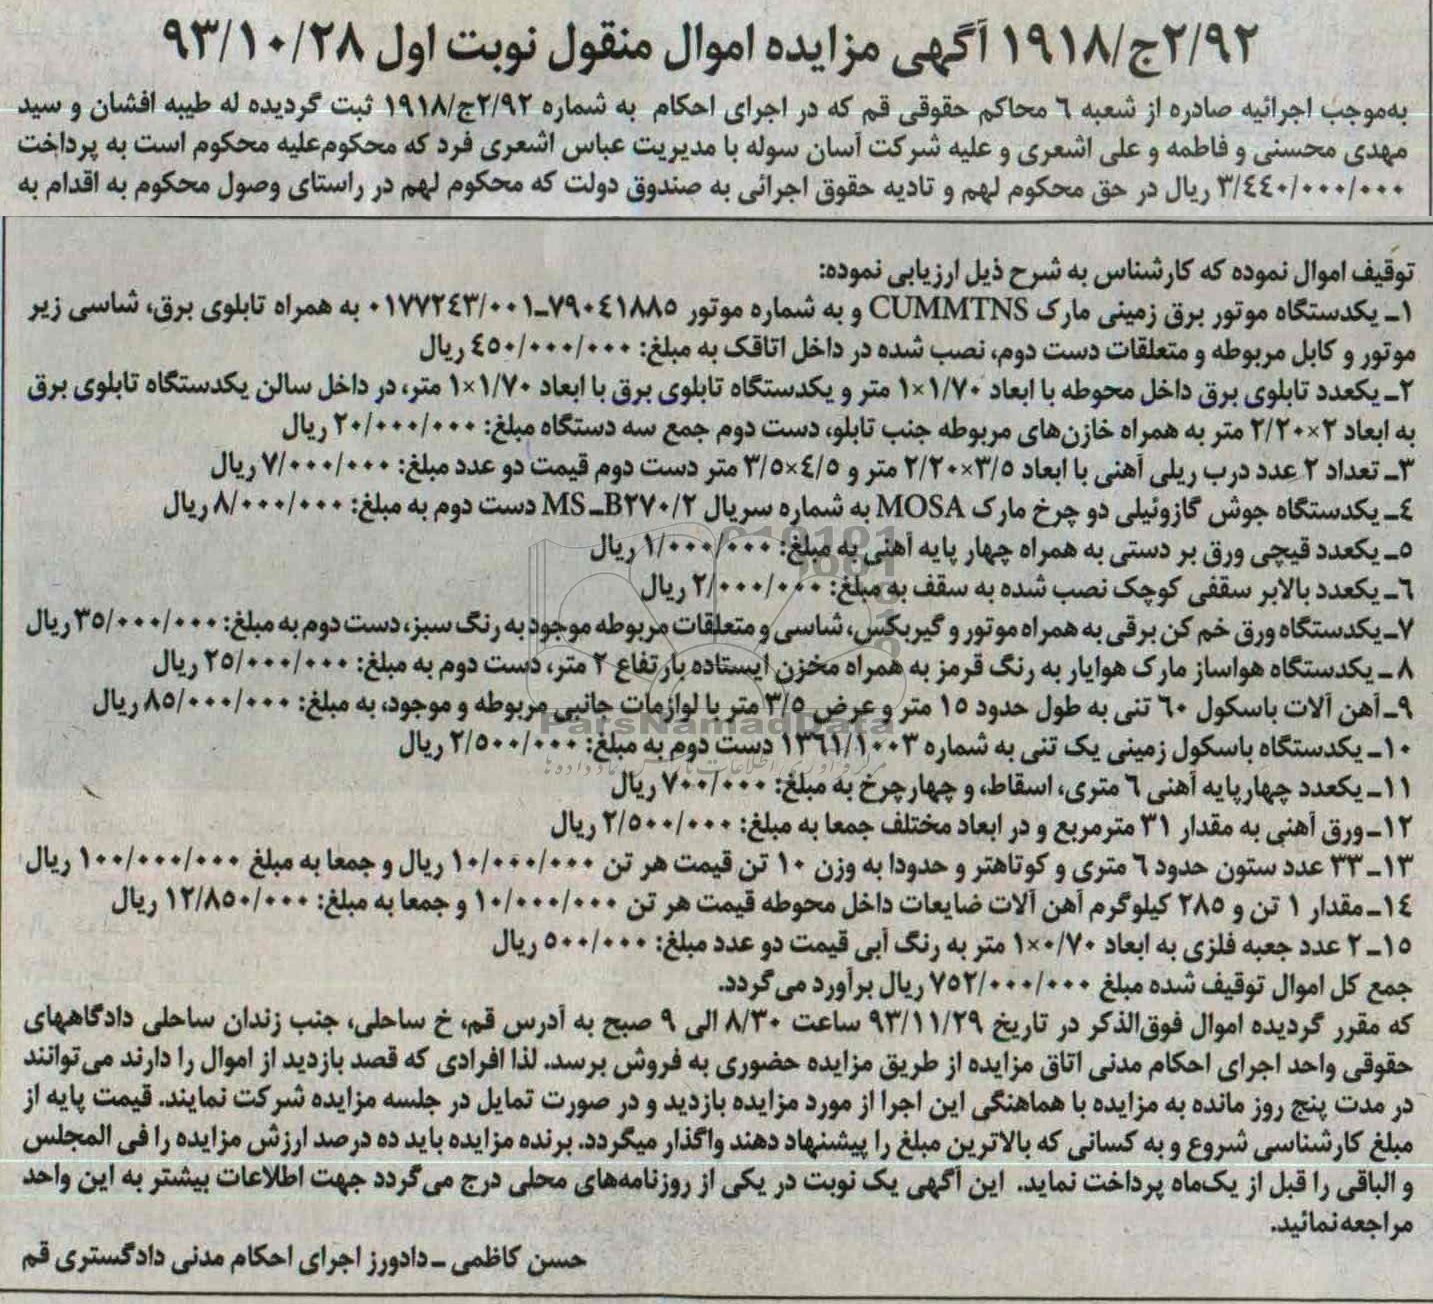 ۲/۹۲ج/۱۹۱۸ آگهی مزایده اموال منقول نوبت اول ۹۳/۱۰/۲۸
به‌موجب اجرائیه صادره از شعبه ٦ محاکم حقوقی قم که در اجرای احکام به شماره ۲/۹۲ج/۱۹۱۸ ثبت گردیده له طیبه افشان و سید
مهدی محسنی و فاطمه و علی اشعری و علیه شرکت آسان سوله با مدیریت عباس اشعری فرد که محکوم‌علیه محکوم است به پرداخت
۳/٤٤۰/۰۰۰/۰۰۰ ریال در حق محکوم لهم و تادیه حقوق اجرائی به صندوق دولت که محکوم لهم در راستای وصول محکوم به اقدام به
توقیف اموال نموده که کارشناس به شرح ذیل ارزیابی نموده:
۱ـ یکدستگاه موتور برق زمینی مارک CUMMTNS و به شماره موتور ۷۹۰٤۱۸۸٥ـ۰۱۷۷۲٤۳/۰۰۱ به همراه تابلوی برق، شاسی زیر
موتور و کابل مربوطه و متعلقات دست دوم، نصب شده در داخل اتاقک به مبلغ: ٤٥۰/۰۰۰/۰۰۰ ریال
۲ـ یکعدد تابلوی برق داخل محوطه با ابعاد ۱/۷۰×۱ متر و یکدستگاه تابلوی برق با ابعاد ۱/۷۰×۱ متر، در داخل سالن یکدستگاه تابلوی برق
به ابعاد ۲×۲/۲۰ متر به همراه خازن‌های مربوطه جنب تابلو، دست دوم جمع سه دستگاه مبلغ: ۲۰/۰۰۰/۰۰۰ ریال
۳ـ تعداد ۲ عدد درب ریلی آهنی با ابعاد ۳/٥×۲/۲۰ متر و ٤/٥×۳/٥ متر دست دوم قیمت دو عدد مبلغ: ۷/۰۰۰/۰۰۰ ریال
٤ـ یکدستگاه جوش گازوئیلی دو چرخ مارک MOSA به شماره سریال MS_B۲۷۰/۲ دست دوم به مبلغ: ۸/۰۰۰/۰۰۰ ریال
٥ـ یکعدد قیچی ورق بر دستی به همراه چهار پایه آهنی به مبلغ: ۱/۰۰۰/۰۰۰ ریال
٦ـ یکعدد بالابر سقفی کوچک نصب شده به سقف به مبلغ: ۲/۰۰۰/۰۰۰ ریال
۷ـ یکدستگاه ورق خم کن برقی به همراه موتور و گیربکس، شاسی و متعلقات مربوطه موجود به رنگ سبز، دست دوم به مبلغ: ۳٥/۰۰۰/۰۰۰ ریال
۸ ـ یکدستگاه هواساز مارک هوایار به رنگ قرمز به همراه مخزن ایستاده بارتفاع ۲ متر، دست دوم به مبلغ: ۲٥/۰۰۰/۰۰۰ ریال
۹ـ آهن آلات باسکول ٦۰ تنی به طول حدود ۱٥ متر و عرض ۳/٥ متر با لوازمات جانبی مربوطه و موجود، به مبلغ: ۸٥/۰۰۰/۰۰۰ ریال
ParsNamadData
۱۰ـ یکدستگاه باسکول زمینی یک تنی به شماره ۱۳٦۱/۱۰۰۳ دست دوم به مبلغ: ۲/٥۰۰/۰۰۰ ریال
۱۱ـ یکعدد چهارپایه آهنی ٦ متری، اسقاط، و چهارچرخ به مبلغ: ۷۰۰/۰۰۰ ریال
۱۲ـ ورق آهنی به مقدار ۳۱ مترمربع و در ابعاد مختلف جمعا به مبلغ: ۲/٥۰۰/۰۰۰ ریال
۱۳ـ ۳۳ عدد ستون حدود ٦ متری و کوتاهتر و حدودا به وزن ۱۰ تن قیمت هر تن ۱۰/۰۰۰/۰۰۰ ریال و جمعا به مبلغ ۱۰۰/۰۰۰/۰۰۰ ریال
۱٤ـ مقدار ۱ تن و ۲۸٥ کیلوگرم آهن آلات ضایعات داخل محوطه قیمت هر تن ۱۰/۰۰۰/۰۰۰ و جمعا به مبلغ: ۱۲/۸٥۰/۰۰۰ ریال
۱٥ـ ۲ عدد جعبه فلزی به ابعاد ۰/۷۰×۱ متر به رنگ آبی قیمت دو عدد مبلغ: ٥۰۰/۰۰۰ ریال
جمع کل اموال توقیف شده مبلغ ۷٥۲/۰۰۰/۰۰۰ ریال برآورد می‌گردد.
که مقرر گردیده اموال فوق‌الذکر در تاریخ ۹۳/۱۱/۲۹ ساعت ۸/۳۰ الی ۹ صبح به آدرس قم، خ ساحلی، جنب زندان ساحلی دادگاههای
حقوقی واحد اجرای احکام مدنی اتاق مزایده از طریق مزایده حضوری به فروش برسد. لذا افرادی که قصد بازدید از اموال را دارند می‌توانند
در مدت پنج روز مانده به مزایده با هماهنگی این اجرا از مورد مزایده بازدید و در صورت تمایل در جلسه مزایده شرکت نمایند. قیمت پایه از
مبلغ کارشناسی شروع و به کسانی که بالاترین مبلغ را پیشنهاد دهند واگذار میگردد. برنده مزایده باید ده درصد ارزش مزایده را فی المجلس
و الباقی را قبل از یک‌ماه پرداخت نماید. این آگهی یک نوبت در یکی از روزنامه‌های محلی درج می‌گردد جهت اطلاعات بیشتر به این واحد
مراجعه‌نمائید.
حسن کاظمی ـ دادورز اجرای احکام مدنی دادگستری قم